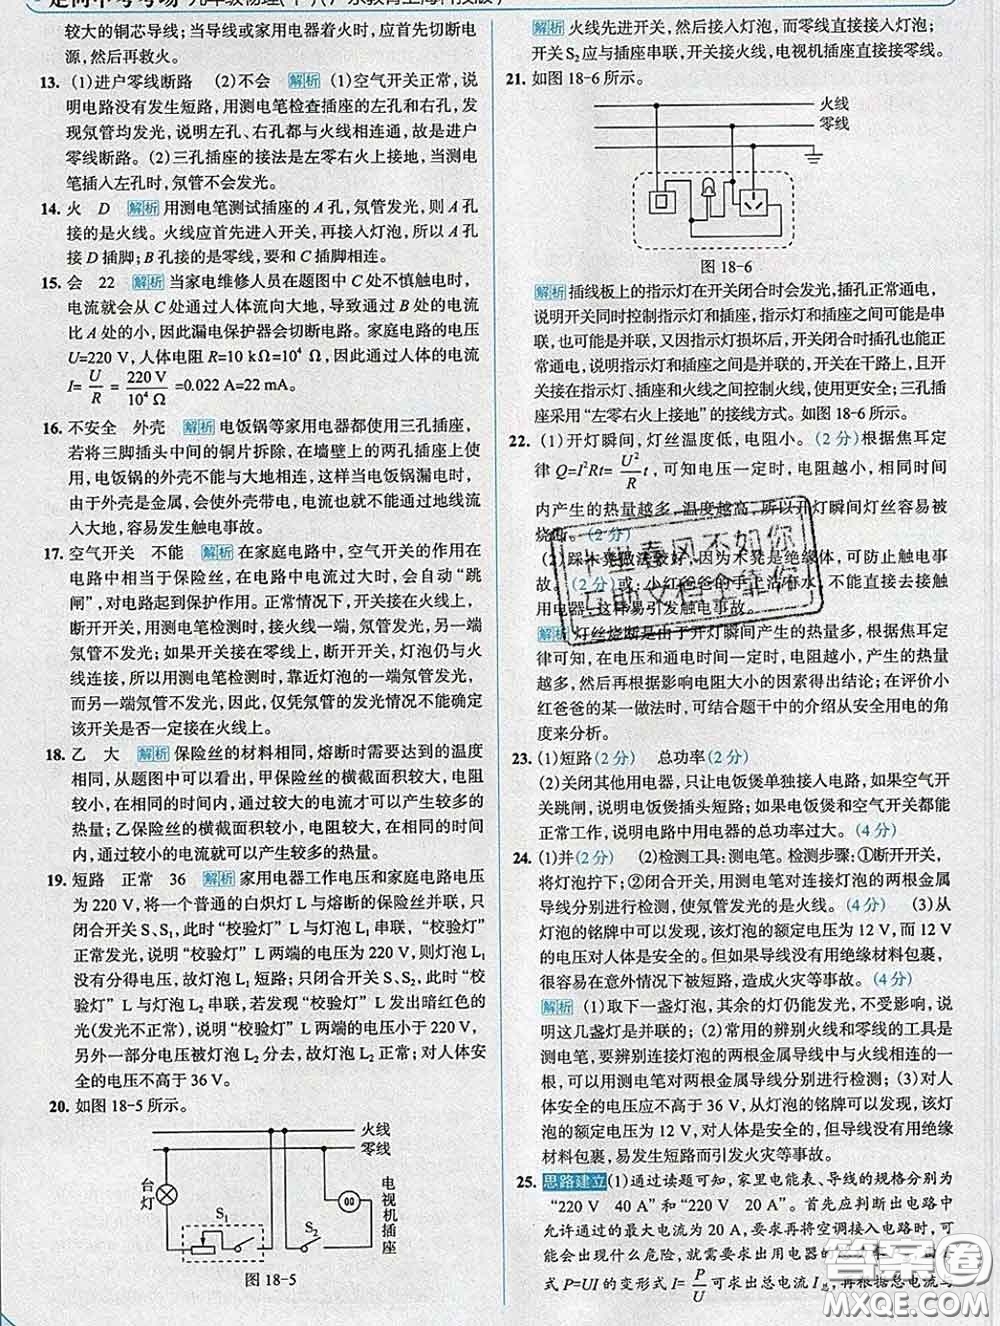 走向中考考场 九年级物理(下)(广东教育上海科技版)
较大的铜芯导线；当导线或家用电器着火时，应首先切断电
源，然后再救火。
13. (1)进户零线断路 (2)不会 解析 (1)空气开关正常，说
明电路没有发生短路，用测电笔检查插座的左孔和右孔，发
现氖管均发光，说明左孔、右孔都与火线相连通，故是进户
零线断路。(2)三孔插座的接法是左零右火上接地，当测电
笔插入左孔时，氖管不会发光。
14. 火 D 解析 用测电笔测试插座的 A 孔，氖管发光，则 A 孔
接的是火线。火线应首先进入开关，再接入灯泡，所以 A 孔
接 D 插脚；B 孔接的是零线，要和 C 插脚相连。
15. 会 22 解析 当家电维修人员在题图中 C 处不慎触电时，
电流就会从 C 处通过人体流向大地，导致通过 B 处的电流
比 A 处的小，因此漏电保护器会切断电路。家庭电路的电压
U=220 V，人体电阻 R=10 kΩ=10⁴ Ω，因此通过人体的电流
I=U/R=220 V/10⁴ Ω=0.022 A=22 mA。
16. 不安全 外壳 解析 电饭锅等家用电器都使用三孔插座，
若将三脚插头中间的铜片拆除，在墙壁上的两孔插座上使用
电饭锅，电饭锅的外壳不能与大地相连，这样当电饭锅漏电时，
由于外壳是金属，会使外壳带电，电流也就不能通过地线流
入大地，容易发生触电事故。
17. 空气开关 不能 解析 在家庭电路中，空气开关的作用在
电路中相当于保险丝，在电路中电流过大时，会自动“跳
闸”，对电路起到保护作用。正常情况下，开关接火线上时，
断开开关，用测电笔检测时，接火线一端，氖管发光，另一
端，氖管不发光；如果开关接在零线上，断开开关，灯泡仍与火
线连接，所以用测电笔检测时，靠近灯泡的一端氖管发光，
而另一端氖管不发光，因此，仅凭氖管的发光情况不能确定
该开关是否一定接在火线上。
18. 乙 大 解析 保险丝的材料相同，熔断时需要达到的温度
相同，从题图中可以看出，甲保险丝的横截面积较大，电阻
较小，在相同的时间内，通过较大的电流才可以产生较多的
热量；乙保险丝的横截面积较小，电阻较大，在相同的时间
内，通过较小的电流就可以产生较多的热量。
19. 短路 正常 36 解析 家用电器工作电压和家庭电路电压
为 220 V，将一个普通的白炽灯 L 与熔断的保险丝并联，只
闭合开关 S、S₁，此时“校验灯”L 与灯泡 L₁ 串联，“校验灯”
正常发光，说明“校验灯”L 两端的电压为 220 V，则灯泡 L₁
没有分得电压，故灯泡 L₁ 短路；只闭合开关 S、S₂，此时“校
验灯”L 与灯泡 L₂ 串联，若发现“校验灯”L 发出暗红色的
光(发光不正常)，说明“校验灯”L 两端的电压小于 220 V，
另外一部分电压被灯泡 L₂ 分去，故灯泡 L₂ 正常；对人体安
全的电压不高于 36 V。
20. 如图 18-5 所示。
火线
零线
台灯
电视机插座
S₁
S₂
图 18-5
解析 火线先进开关，然后接入灯泡，而后零线接入灯泡；
开关 S₂ 应与插座串联，开关接火线，电视机插座直接接零线。
21. 如图 18-6 所示。
火线
零线
图 18-6
解析 插线板上的指示灯在开关闭合时会发光，插孔正常通电，
说明开关同时控制指示灯和插座，指示灯和插座之间可能是串
联，也可能是并联，又因指示灯损坏后，开关闭合时插孔也能正
常通电，说明指示灯和插座之间是并联的，开关在干路上，且开
关接在指示灯、插座和火线之间控制火线，使用更安全；三孔插
座采用“左零右火上接地”的接线方式。如图 18-6 所示。
22. (1)开灯瞬间，灯丝温度低，电阻小。(2 分)根据焦耳定
律 Q=I²Rt=U²/R t，可知电压一定时，电阻越小，相同时间
内产生的热量越多，温度越高，所以开灯瞬间灯丝容易被
烧断。(2 分)
(2)踩木凳做法较好，因为木凳是绝缘体，可防止触电事
故。(2 分)或：小红爸爸的手上沾有水，不能直接去接触
用电器，这样易引发触电事故。
解析 灯丝烧断是由于开灯瞬间产生的热量多，根据焦耳定
律可知，在电压和通电时间一定时，电阻越小，产生的热量
越多，然后再根据影响电阻大小的因素得出结论；在评价小
红爸爸的某一做法时，可结合题干中的介绍从安全用电的角
度来分析。
23. (1)短路(2 分) 总功率(2 分)
(2)关闭其他用电器，只让电饭煲单独接入电路，如果空气开
关跳闸，说明电饭煲插头短路；如果电饭煲和空气开关都能
正常工作，说明电路中用电器的总功率过大。(4 分)
24. (1)并(2 分) (2)检测工具：测电笔。检测步骤：①断开开关，
将灯泡拧下；②闭合开关，用测电笔对连接灯泡的两根金属
导线分别进行检测，使氖管发光的是火线。(4 分) (3)从
灯泡的铭牌中可以发现，该灯泡的额定电压为 12 V，而 12 V
的电压对人体是安全的。但如果导线没有用绝缘材料包裹，
很容易在意外情况下被短路，造成火灾等事故。(4 分)
解析 (1)取下一盏灯泡，其余的灯仍能发光，不受影响，说
明这几盏灯是并联的；(2)常用的辨别火线和零线的工具是
测电笔，要辨别连接灯泡的两根金属导线中与火线相连的一
根，可以用测电笔对两根金属导线分别进行检测；(3)对人
体安全的电压应不高于 36 V，从灯泡的铭牌可以发现，该灯
泡的额定电压为 12 V，对人体是安全的，但导线没有用绝缘
材料包裹，易发生短路而引发火灾等事故。
25. 思路建立 (1)通过读题可知，家里电能表、导线的规格分别为
“220 V 40 A”和“220 V 20 A”。首先应判断出电路中
允许通过的最大电流为 20 A，要求再将空调接入电路时，可
能会出现什么危险，就需要求出用电器的
式 P=UI 的变形式 I=P/U 可求出总电流 I 总，再根据总电流与
答案圈
MXQE.COM